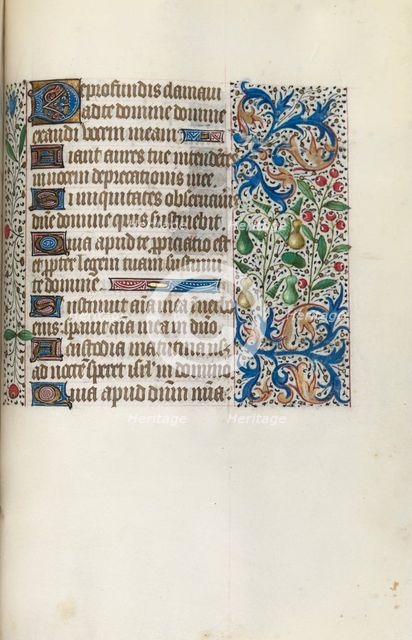 De profundis clamavi
ad te domine domine
exaudi vocem meam
Fiant aures tue intendetes
in vocem deprecationis mee.
Si iniquitates observaris
dne domine quis sustinebit.
Quia apud te propiciatio est
et ppter legem tuam sustinui
te domine.
Sustinuit aia mea in verbo
eius speravit aia mea in dno.
A custodia matutina usq
ad noctem speret isrl in domino
Quia apud dnm mia
Heritage
Heritage